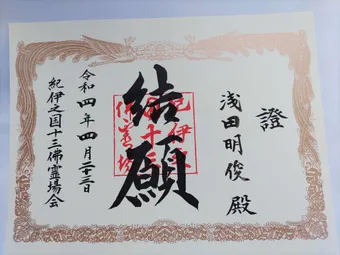 證
浅田明俊殿
結願
令和四年四月二十三日
紀伊之国十三佛霊場会